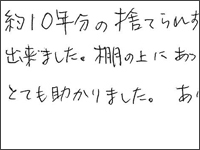 約10年分の捨てられず
出来ました。棚の上にあっ
とても助かりました。 あり